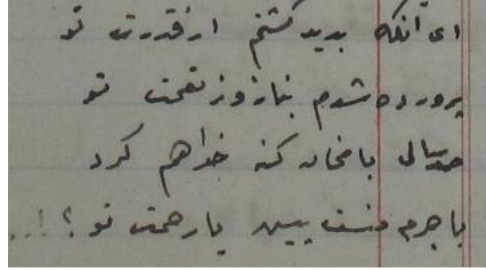 ای آنکه پدید گشتم از قدرت تو
پرورده شدم بناز و ز نعمت تو
صد سال بامتحان گنه خواهم کرد
یا جرم منست بیش یا رحمت تو؟!...